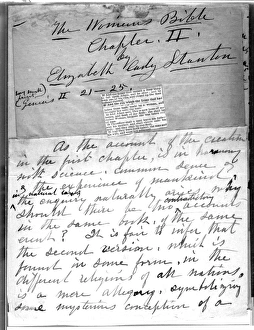 The Woman's Bible
Chapter. II.
by
Elizabeth Cady Stanton
(Genesis II 21–25.
As the account of the creation
in the first chapter, is in harmony
with science, common sense, &
the experience of mankind
in natural laws,
the enquiry naturally arises, why
contradictory
should there be two accounts
in the same book, of the same
event? It is fair to infer that
the second version, which is
found in some form, in the
different religions of all nations,
is a mere allegory, symbolizing
some mysterious conception of a